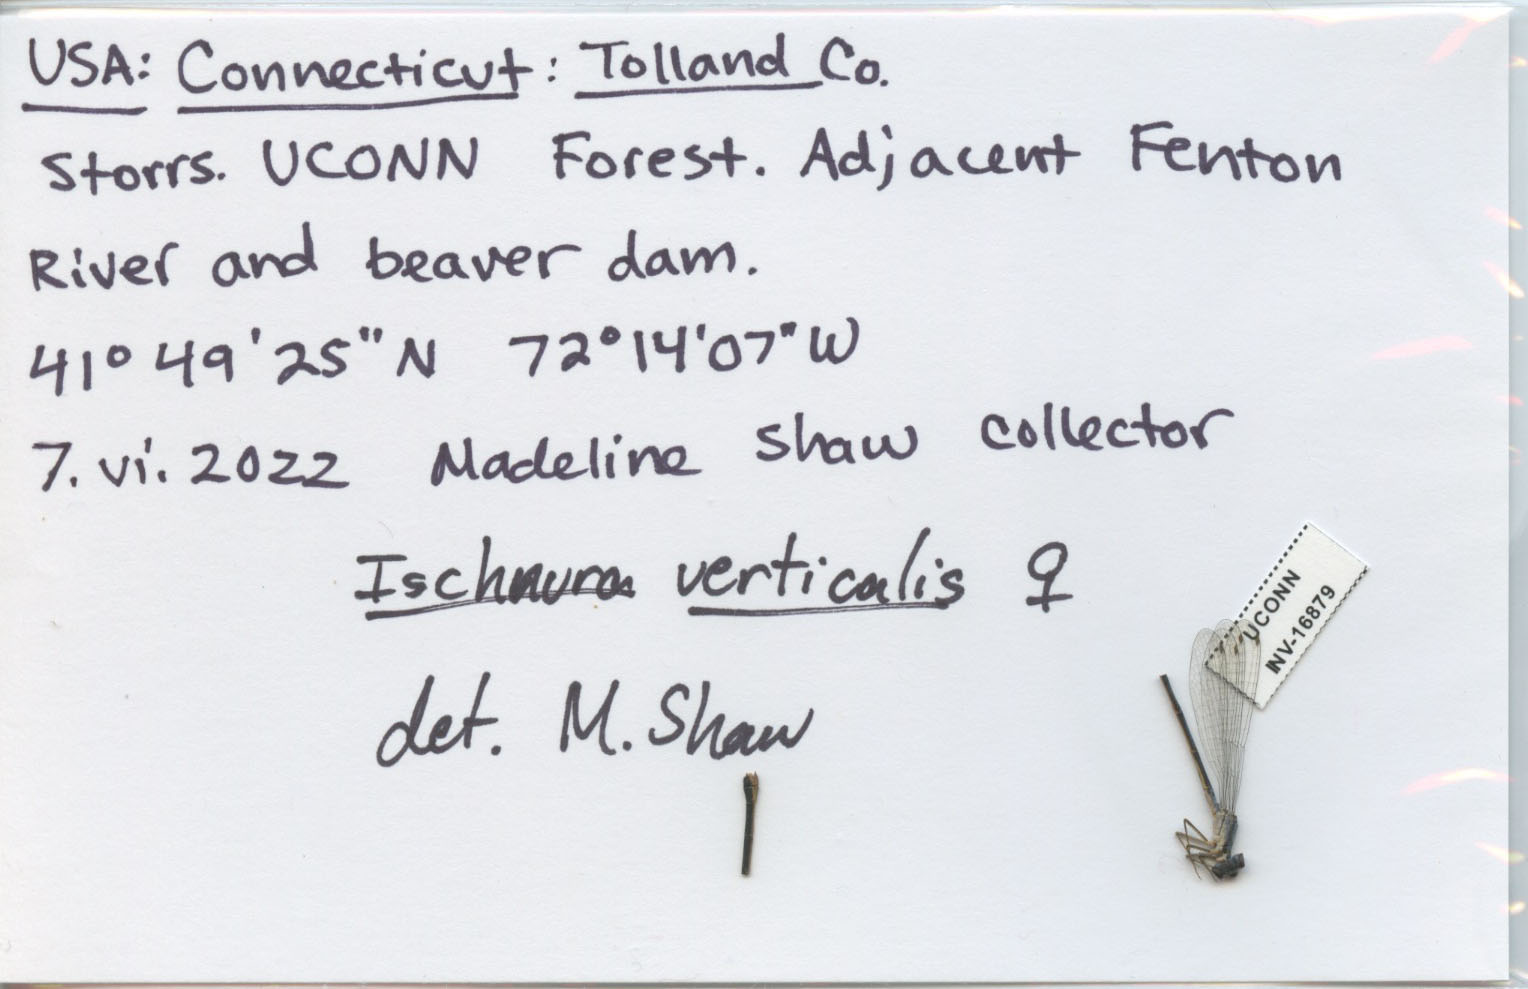 USA: Connecticut: Tolland Co.
Storrs. UCONN Forest. Adjacent Fenton
River and beaver dam.
41° 49'25"N 72°14'07"W
7. vi. 2022 Madeline Shaw collector
Ischnura verticalis ♀
det. M. Shaw
UCONN
INV-16879